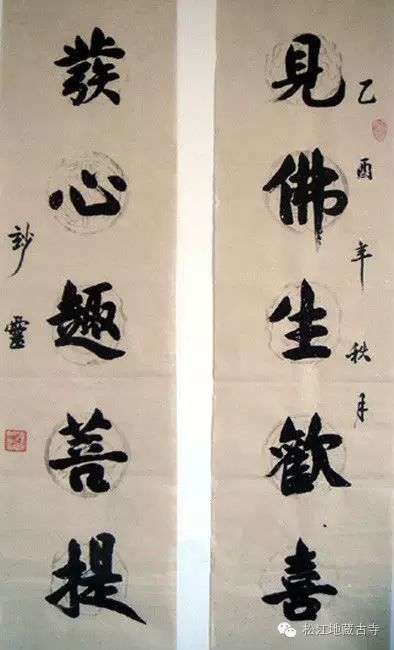 見佛生歡喜
乙酉年秋月
發心趣菩提
妙靈
松江地藏古寺